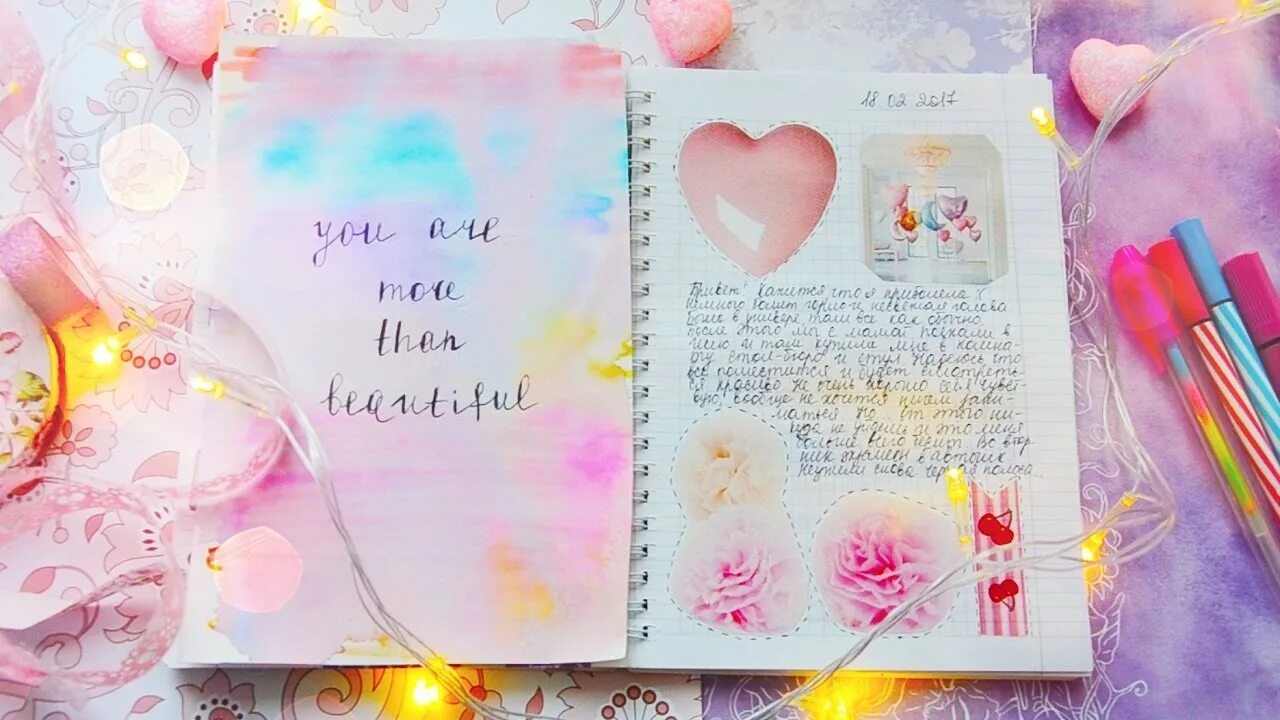 you are
more
than
beautiful
18 02 2017
Привет! Кажется что я приболела
немного болит горло и несвежая голова
Была в универе, там все как обычно
после этого мы с мамой поехали в
и там купили мне в комна-
ту стол-бюро и стул Надеюсь что
все поместится и будет смотреть
ся красиво Не очень хорошо себя чувст-
вую, вообще не хочется ничем зани-
маться Но от этого ни-
куда не уйдешь и это меня
больше всего Во втор-
ник экзамен в
Неужели снова черная полоса...